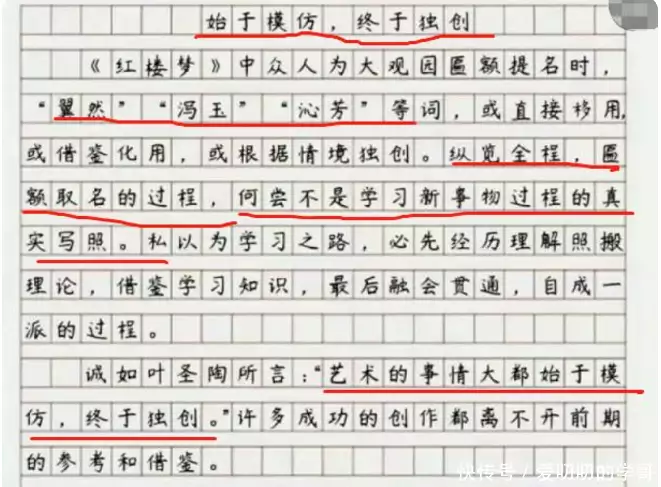 始于模仿，终于独创
《红楼梦》中众人为大观园匾额提名时，
“翼然”“冯玉”“沁芳”等词，或直接移用，
或借鉴化用，或根据情境独创。纵览全程，匾
额取名的过程，何尝不是学习新事物过程的真
实写照。私以为学习之路，必先经历理解照搬
理论，借鉴学习知识，最后融会贯通，自成一
派的过程。
诚如叶圣陶所言：“艺术的事情大都始于模
仿，终于独创。”许多成功的创作都离不开前期
的参考和借鉴。
快传号／爱叨叨的学哥